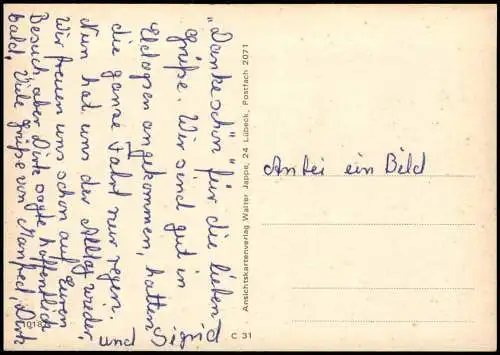 "Dankeschön" für die lieben
Grüße. Wir sind gut in
Eldagsen angekommen, hatten
die ganze Fahrt nur regen.
Nun hat uns der Alltag wieder.
Wir freuen uns schon auf Euren
Besuch, aber Dirk sagte hoffentlich
bald. Viele grüße von Manfred, Dirk
und Sigrid
Ansichtskartenverlag Walter Jappe, 24 Lübeck, Postfach 2071
Anbei ein Bild
C 31